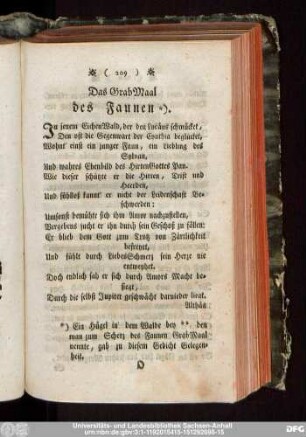 ( 209 )
Das GrabMaal
des Faunen *).
In jenem EichenWald, der den Lucäus schmücket,
Den oft die Gegenwart der Cynthia beglücket,
Wohnt' einst ein junger Faun, ein Liebling des
Sylvan,
Und wahres Ebenbild des HirtenGottes Pan.
Wie dieser schützte er die Hirten, Trift und
Heerden,
Und fühllos kannt' er nicht der Leidenschaft Be-
schwerden:
Umsonst bemühte sich ihm Amor nachzustellen,
Vergebens sucht er ihn durch sein Geschoß zu fällen:
Er blieb dem Gott zum Trutz von Zärtlichkeit
befreyet,
Und fühlt durch LiebesSchmerz sein Herze nie
entweyhet.
Doch endlich sah er sich durch Amors Macht be-
siegt,
Durch die selbst Jupiter geschwächt darnieder liegt.
*) Ein Hügel in dem Walde bey ** den
man zum Scherz des Faunen GrabMaal
nennte, gab zu diesem Gedicht Gelegen-
heit.
O
Universitäts- und Landesbibliothek Sachsen-Anhalt
DFG